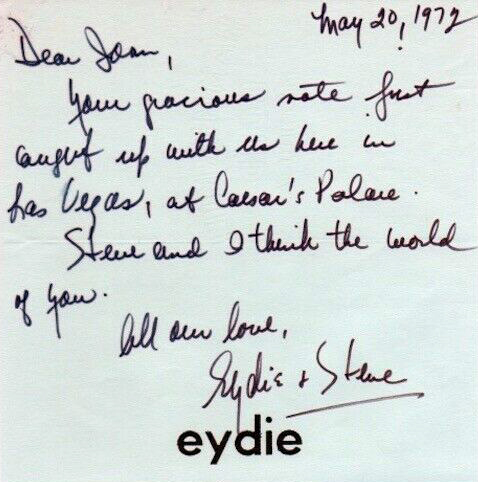 May 20, 1972
Dear Joan,
Your gracious note just
caught up with us here in
Las Vegas, at Caesar's Palace.
Steve and I think the world
of you.
All our love,
Eydie & Steve
eydie